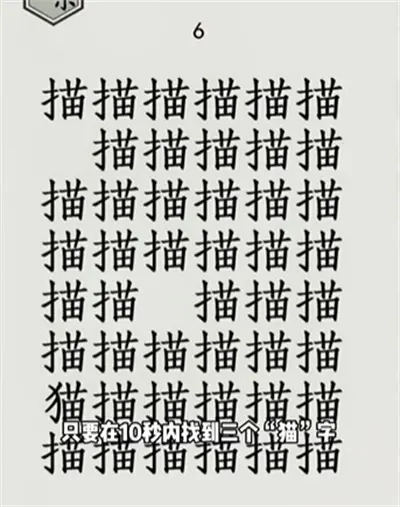 6
描描描描描描
描描描描描
描描描描描描
描描描描描描
描描 描描描
描描描描描描
猫描描描描描
只要在10秒内找到三个“猫”字
描描描描描描